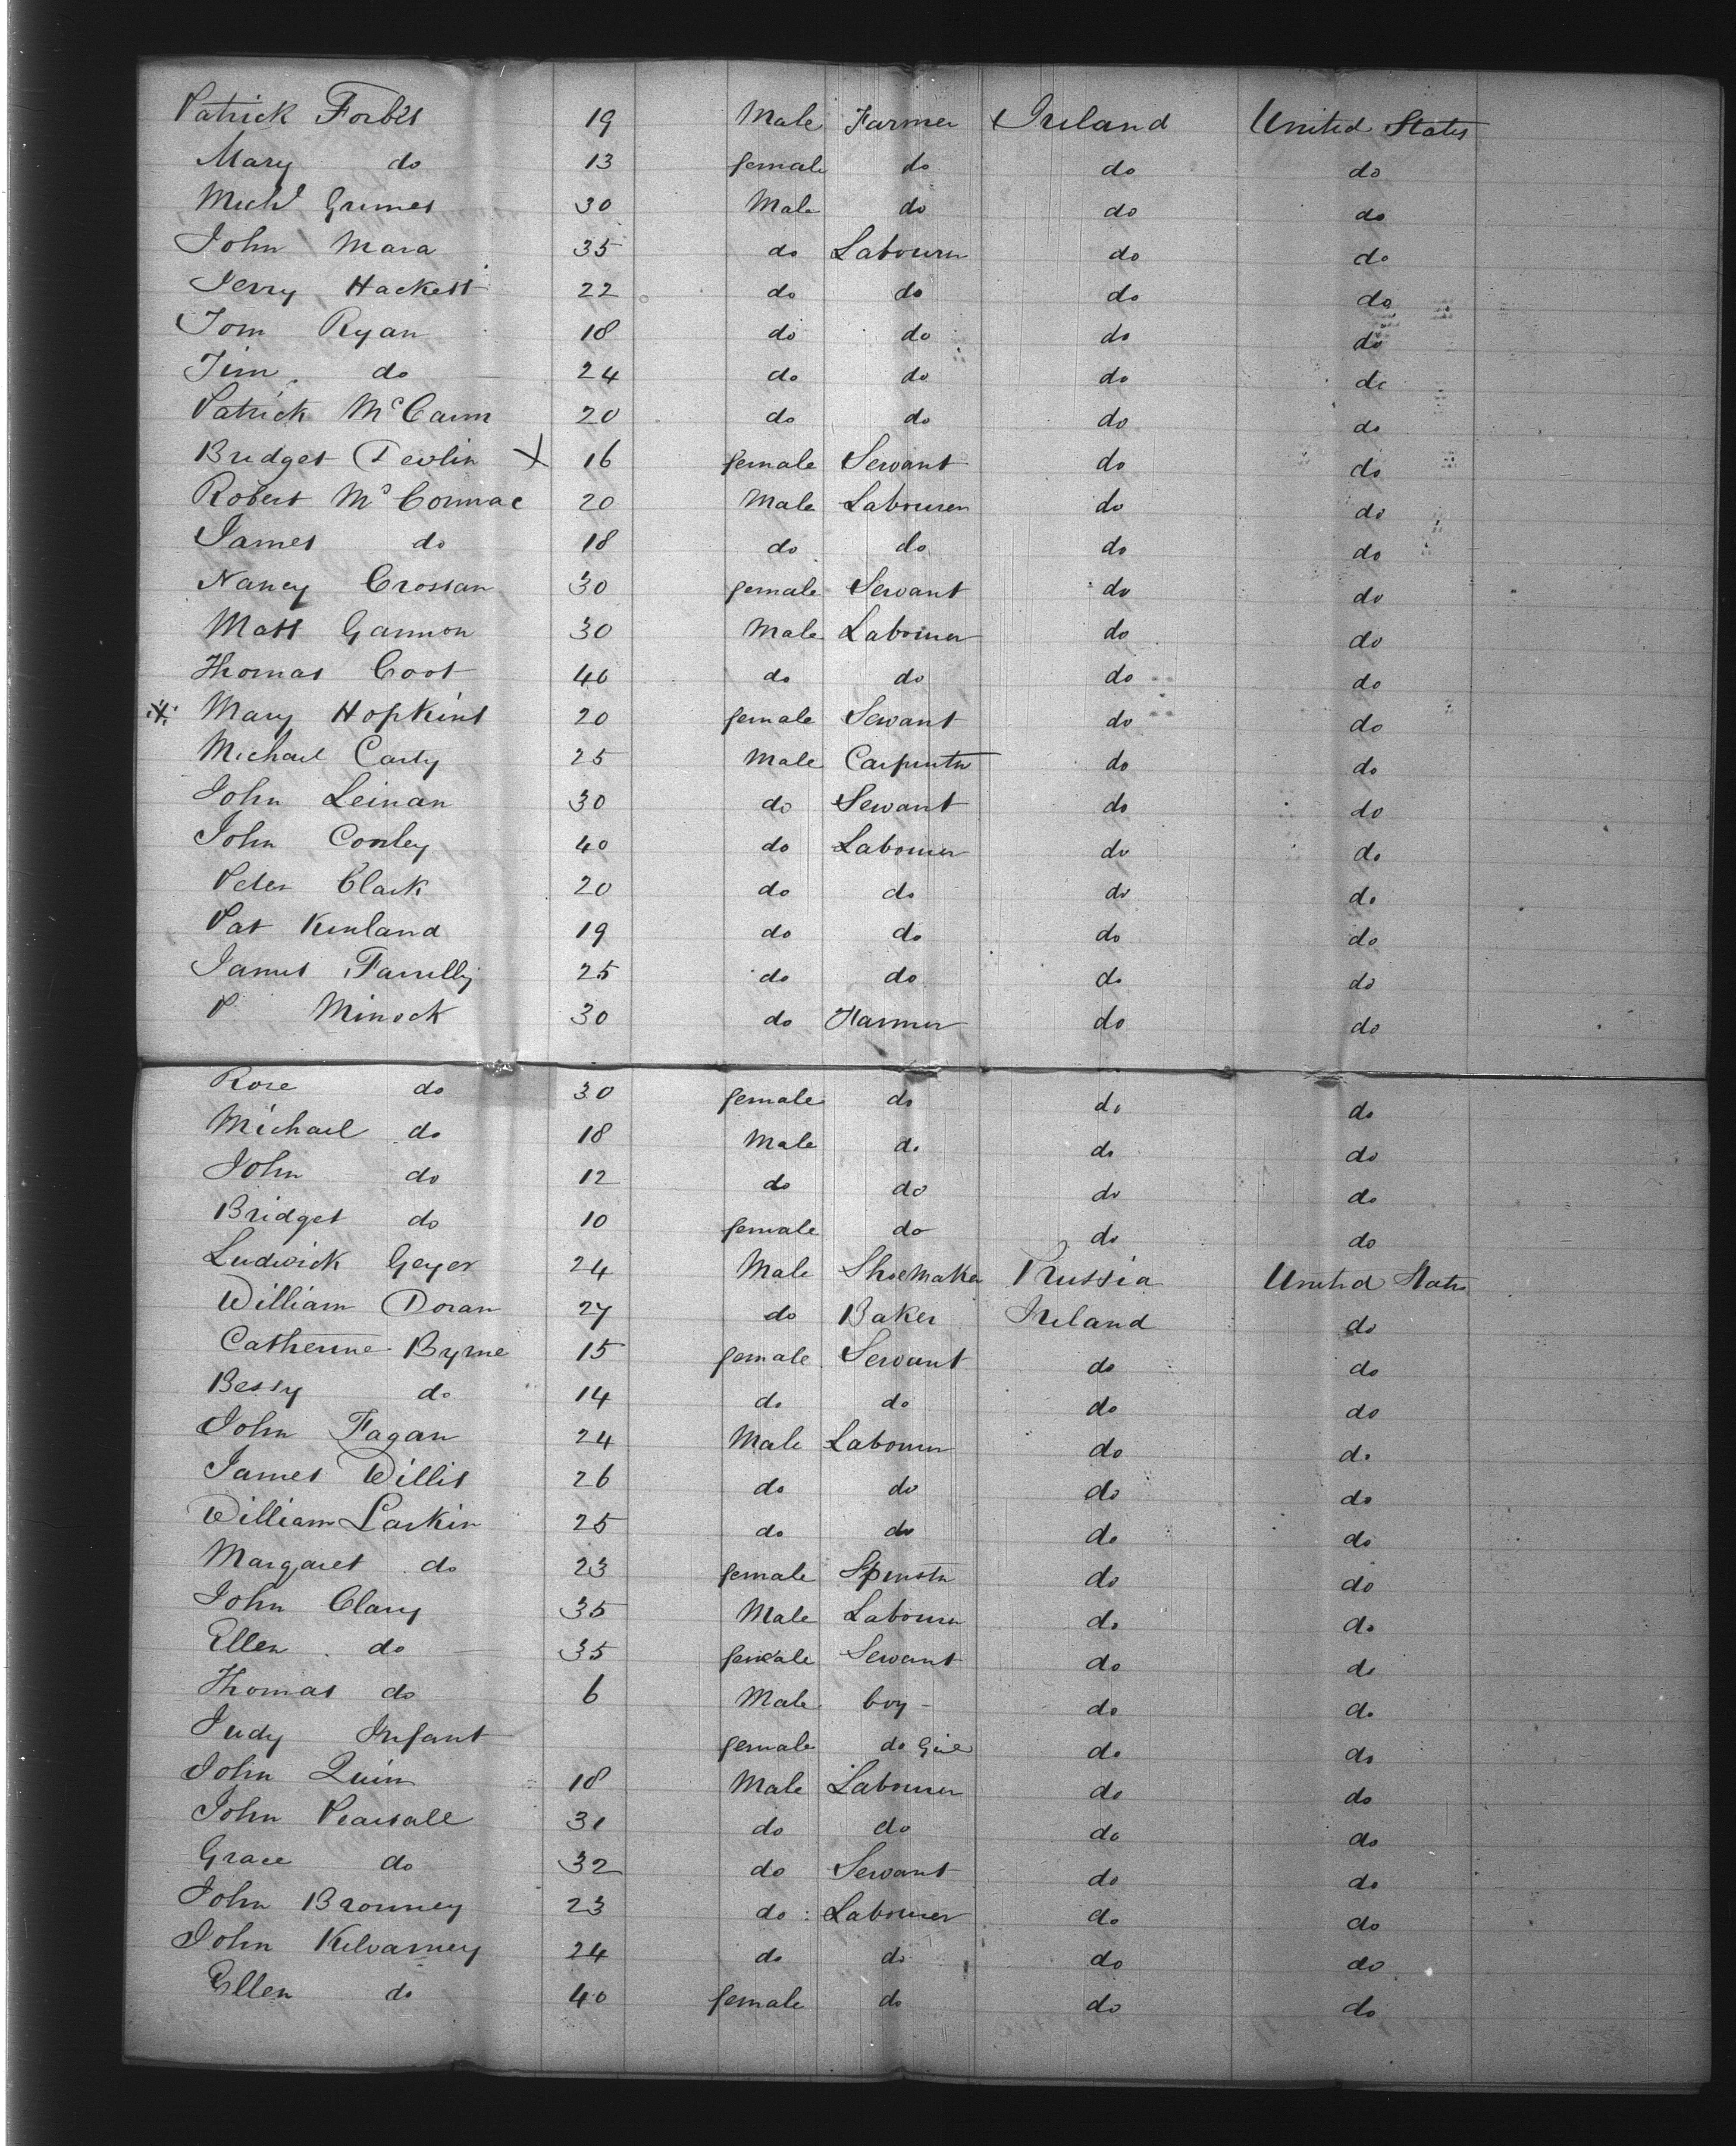 Patrick Forbes 19 Male Farmer Ireland United States
Mary do 13 female do do do
Michl Grimes 30 Male do do do
John Mara 35 do Labourer do do
Jerry Hackett 22 do do do do
Tom Ryan 18 do do do do
Jim do 24 do do do do
Patrick McCann 20 do do do do
Bridget Devlin X 16 female Servant do do
Robert McCormac 20 Male Labourer do do
James do 18 do do do do
Nancy Crossan 30 female Servant do do
Matt Gannon 30 Male Labourer do do
Thomas Coot 40 do do do do
Mary Hopkins 20 female Servant do do
Michael Carty 25 Male Carpenter do do
John Leinan 30 do Servant do do
John Conley 40 do Labourer do do
Peter Clark 20 do do do do
Pat Kinland 19 do do do do
James Farrelly 25 do do do do
P Minock 30 do Farmer do do
Rose do 30 female do do do
Michael do 18 Male do do do
John do 12 do do do do
Bridget do 10 female do do do
Ludwick Geyer 24 Male Shoemaker Prussia United States
William Doran 27 do Baker Ireland do
Catherine Byrne 15 female Servant do do
Bessy do 14 do do do do
John Fagan 24 Male Labourer do do
James Willis 26 do do do do
William Larkin 25 do do do do
Margaret do 23 female Spinster do do
John Clary 35 Male Labourer do do
Ellen do 35 female Servant do do
Thomas do 6 Male boy do do
Judy Infant female do Girl do do
John Quinn 18 Male Labourer do do
John Pearsall 31 do do do do
Grace do 32 do Servant do do
John Bronney 23 do Labourer do do
John Kilvarney 24 do do do do
Ellen do 40 female do do do